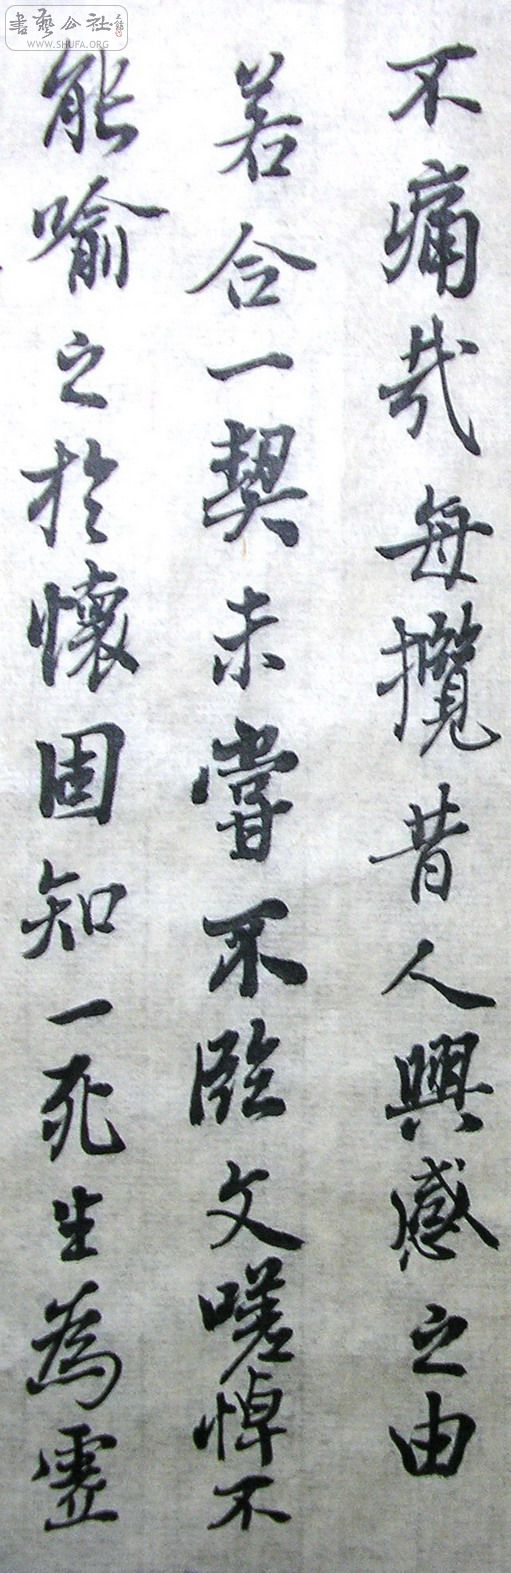 書藝公社
WWW.SHUFA.ORG
不痛哉每攬昔人興感之由
若合一契未嘗不臨文嗟悼不
能喻之於懷固知一死生為虛